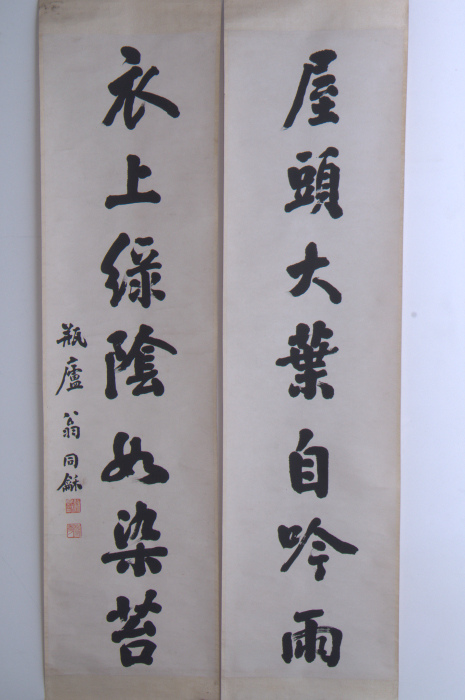 屋頭大葉自吟雨
衣上綠陰如染苔
瓶廬翁同龢